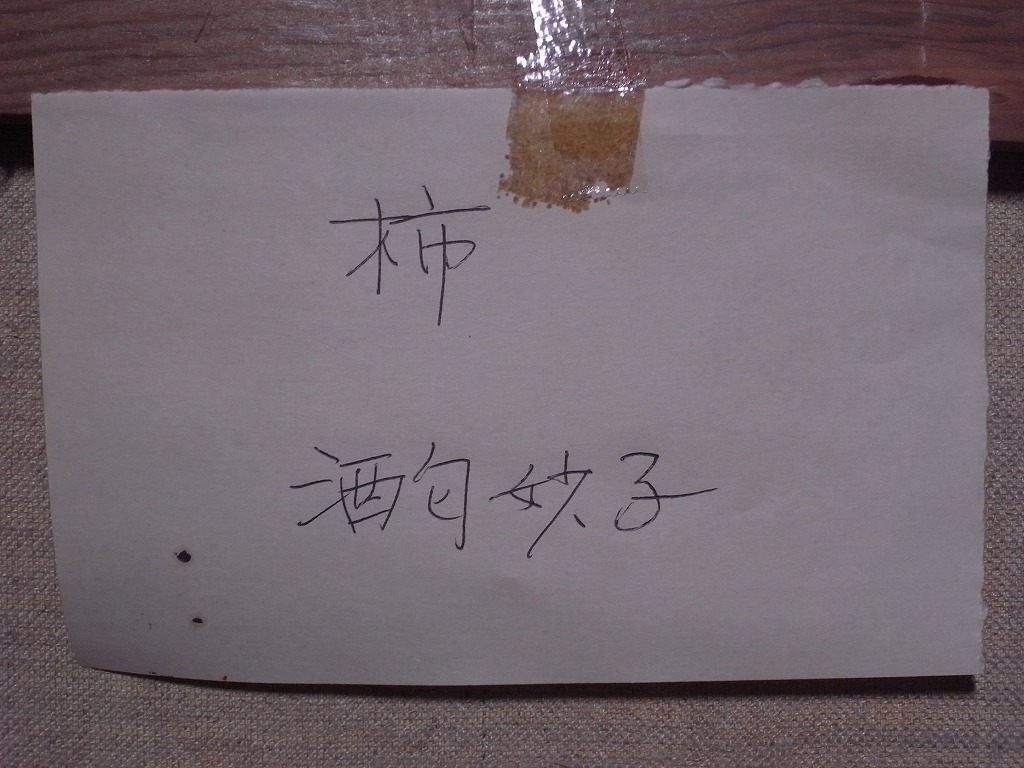 柿
酒匂妙子